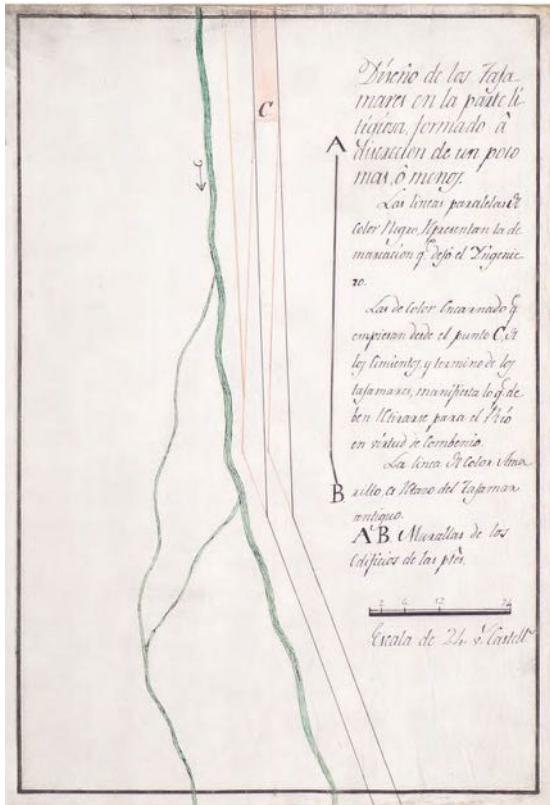 Diseño de los Taja-
mares en la parte li-
tigiosa, formado â
discrecion de un poco
mas, ô menos.
Las lineas paralelas de
Color Negro, Representan la de-
marcacion q.e dejó el Yngenie-
ro.
Las de Color Encarnado q.e
empiezan desde el punto C, de
los Cimientos, y termino de los
tajamares, manifiesta lo q.e de-
ben Retirarse para el Río
en virtud de Combenio.
La linea de Color Ama-
rillo, es Retazo del Tajamar
antiguo.
A B Murallas de los
Edificios de las ptes.
C
A
B
2 6 12 24
Escala de 24 v.s Castell.s